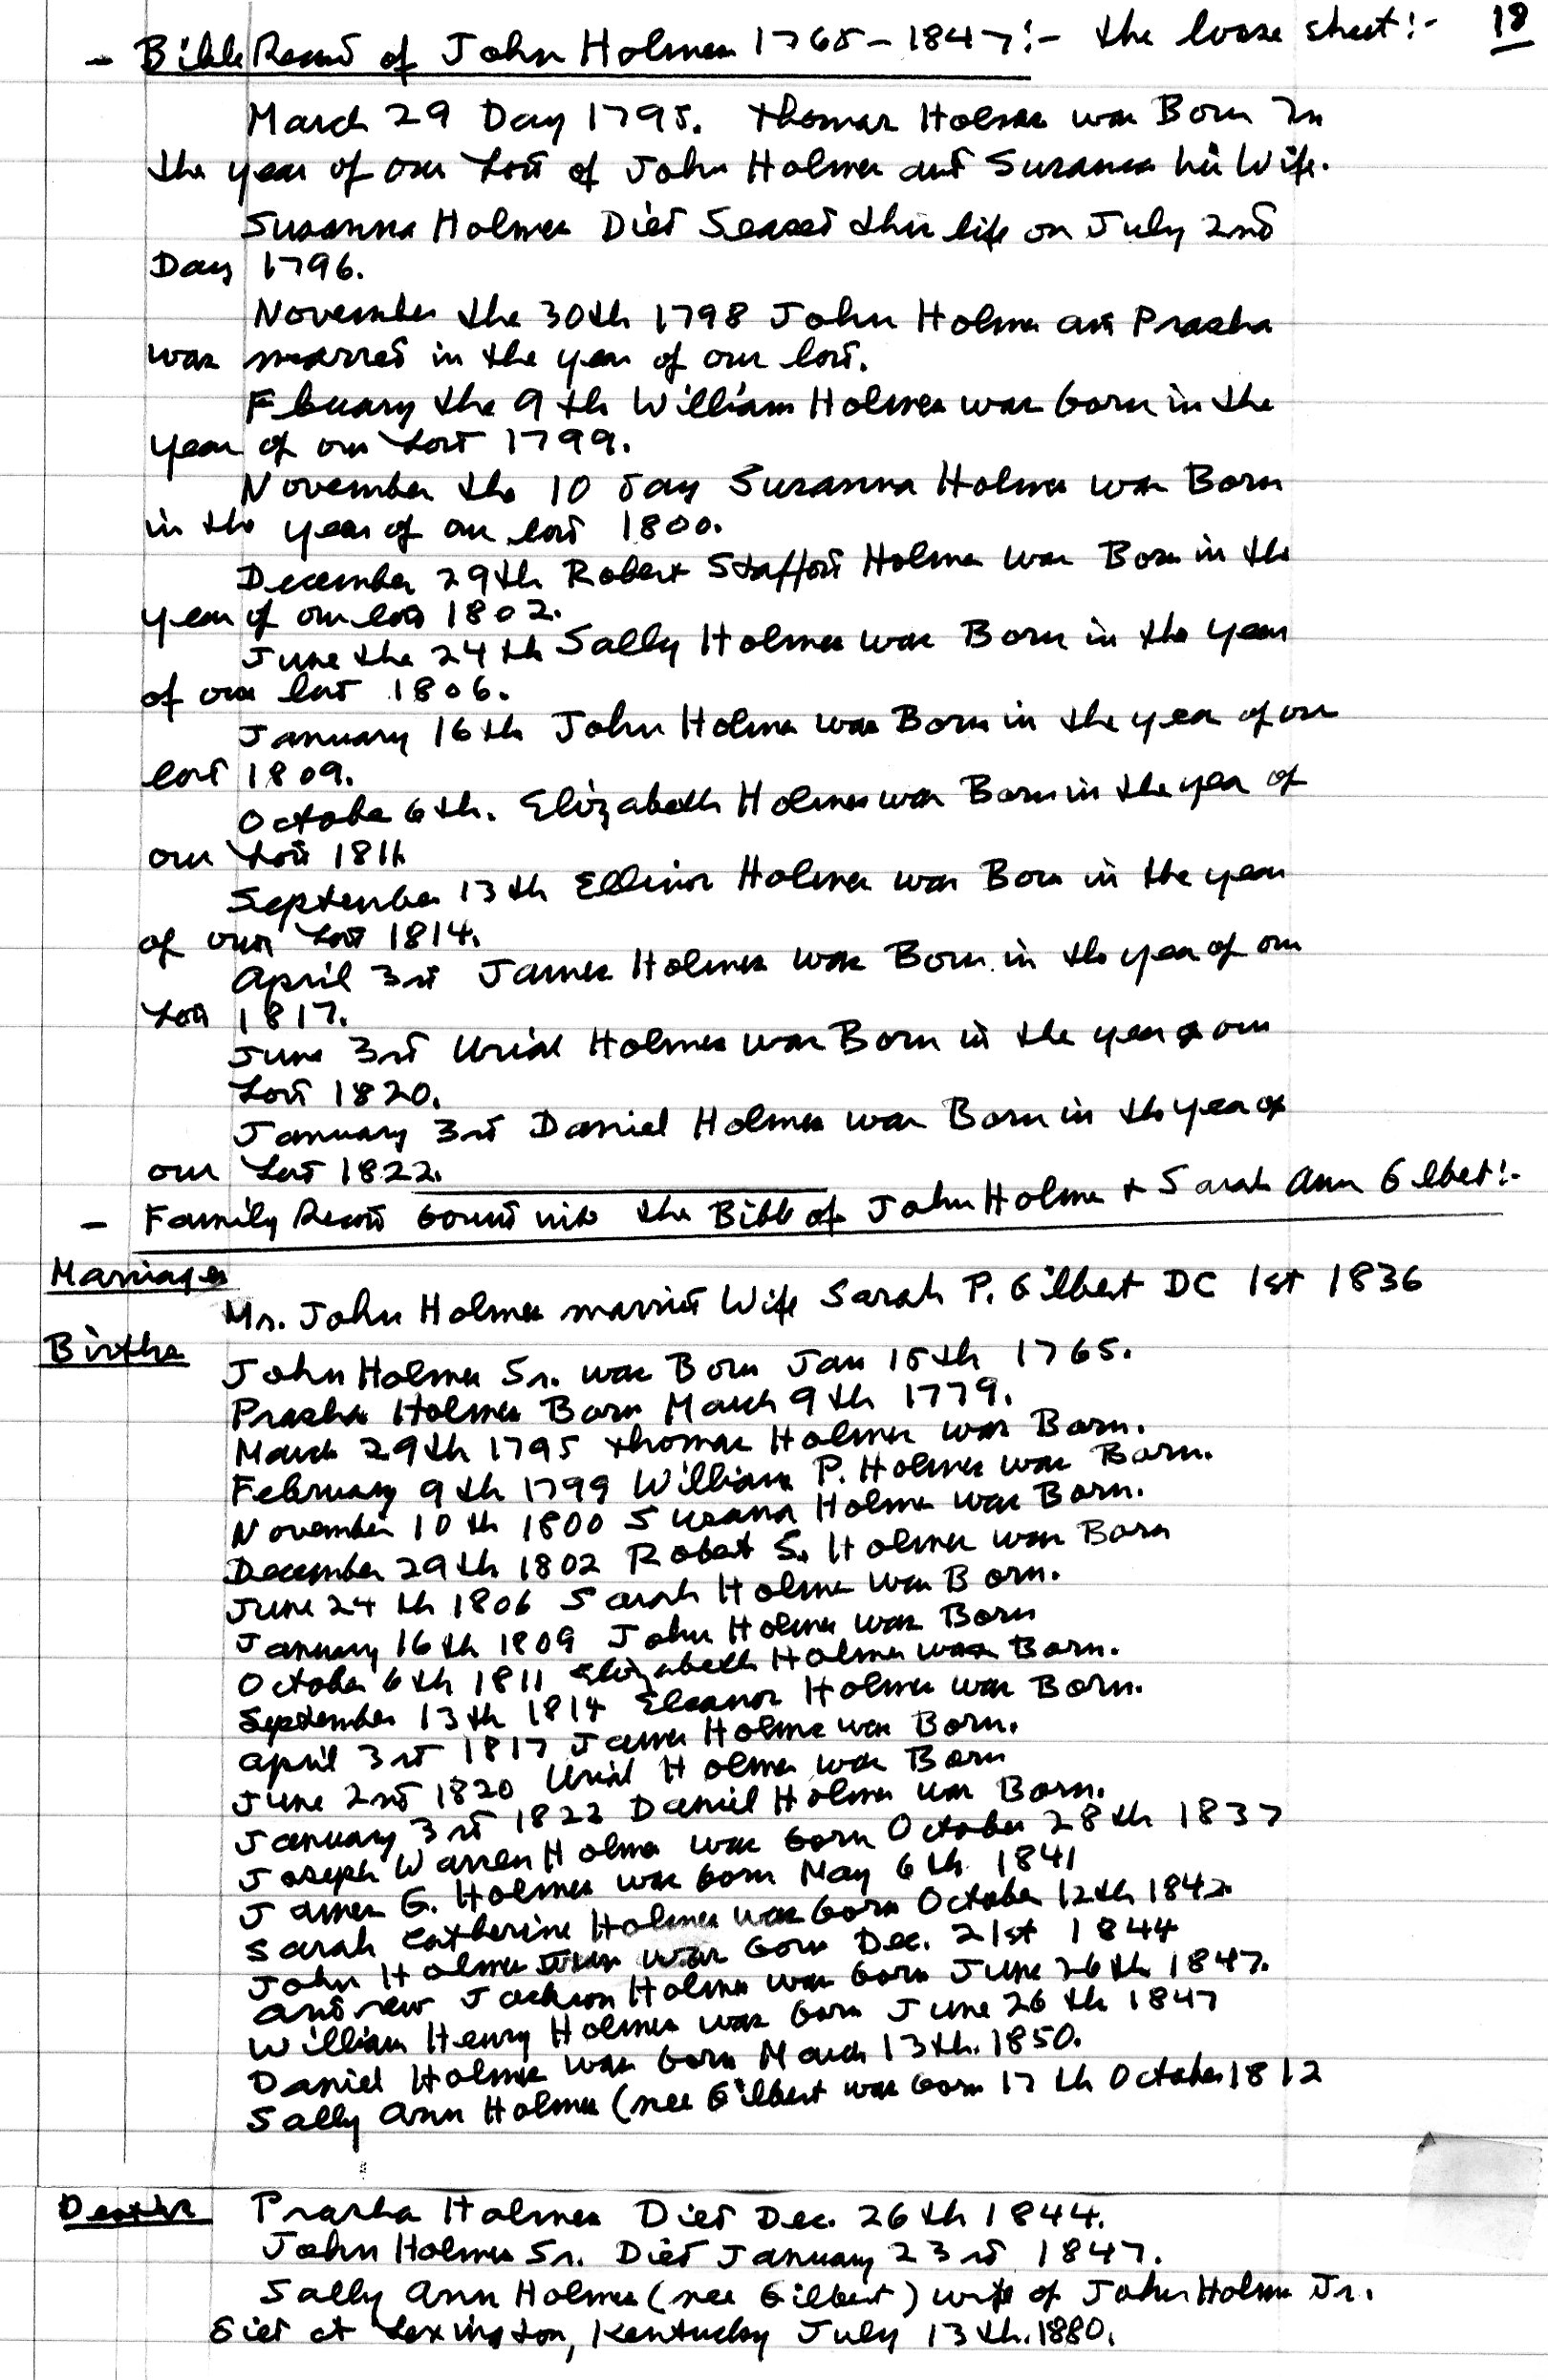 - Bible Record of John Holmes 1765-1847:- the loose sheet:- 18
March 29 Day 1795. Thomas Holmes was Born In
the year of our Lord of John Holmes and Susanna his Wife.
Susanna Holmes Died Seased this life on July 2nd
Day 1796.
November the 30th 1798 John Holmes and Prasha
was marred in the year of our lord.
Febuary the 9th William Holmes was born in the
year of our Lord 1799.
November the 10 day Susanna Holmes was Born
in the year of our lord 1800.
December 29th Robert Stafford Holmes was Born in the
year of our lord 1802.
June the 24th Sally Holmes was Born in the year
of our lord 1806.
January 16th John Holmes was Born in the year of our
lord 1809.
October 6th. Elizabeth Holmes was Born in the year of
our Lord 1811.
September 13th Ellinor Holmes was Born in the year
of our Lord 1814.
April 3rd James Holmes was Born in the year of our
Lord 1817.
June 3rd Uriah Holmes was Born in the year of our
Lord 1820.
January 3rd Daniel Holmes was Born in the year of
our Lord 1822.
- Family Record bound into the Bible of John Holmes + Sarah Ann Gilbert:-
Marriages
Mr. John Holmes married Wife Sarah P. Gilbert DC 1st 1836
Births
John Holmes Sr. was Born Jan 15th 1765.
Prasha Holmes Born March 9th 1779.
March 29th 1795 Thomas Holmes was Born.
February 9th 1799 William P. Holmes was Born.
November 10th 1800 Susana Holmes was Born.
December 29th 1802 Robert S. Holmes was Born
June 24th 1806 Sarah Holmes was Born.
January 16th 1809 John Holmes was Born
October 6th 1811 Elizabeth Holmes was Born.
September 13th 1814 Eleanor Holmes was Born.
April 3rd 1817 James Holmes was Born.
June 2nd 1820 Uriah Holmes was Born
January 3rd 1822 Daniel Holmes was Born.
Joseph Warren Holmes was born October 28th 1837
James G. Holmes was born May 6th 1841
Sarah Catherine Holmes was born October 12th 1842
John Holmes was born Dec. 21st 1844
Andrew Jackson Holmes was born June 26th 1847.
William Henry Holmes was born June 26th 1847
Daniel Holmes was born March 13th. 1850.
Sally Ann Holmes (nee Gilbert was born 17th October 1812
Deaths Prasha Holmes Died Dec. 26th 1844.
John Holmes Sr. Died January 23rd 1847.
Sally Ann Holmes (nee Gilbert) wife of John Holmes Jr.
died at Lexington, Kentucky July 13th. 1880.